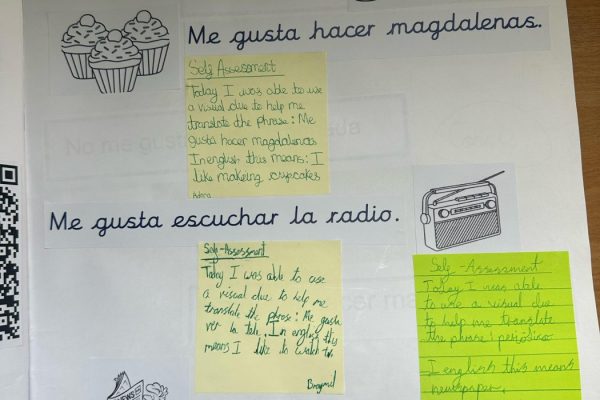 Me gusta hacer magdalenas.
Self Assessment
Today I was able to use
a visual clue to help me
translate the phrase: Me
gusta hacer magdalenas
In english this means: I
like makeing cupcakes
Me gusta escuchar la radio.
Self-Assessment
Today I was able to use
a visual clue to help me
translate the phrose: Me gusta
ver la tele. In english this
means I like to watch
Self-Assessment
Today I was able
to use a visual clue
to help me translate
the phrase:
I english this means
newspaper.
NEWS